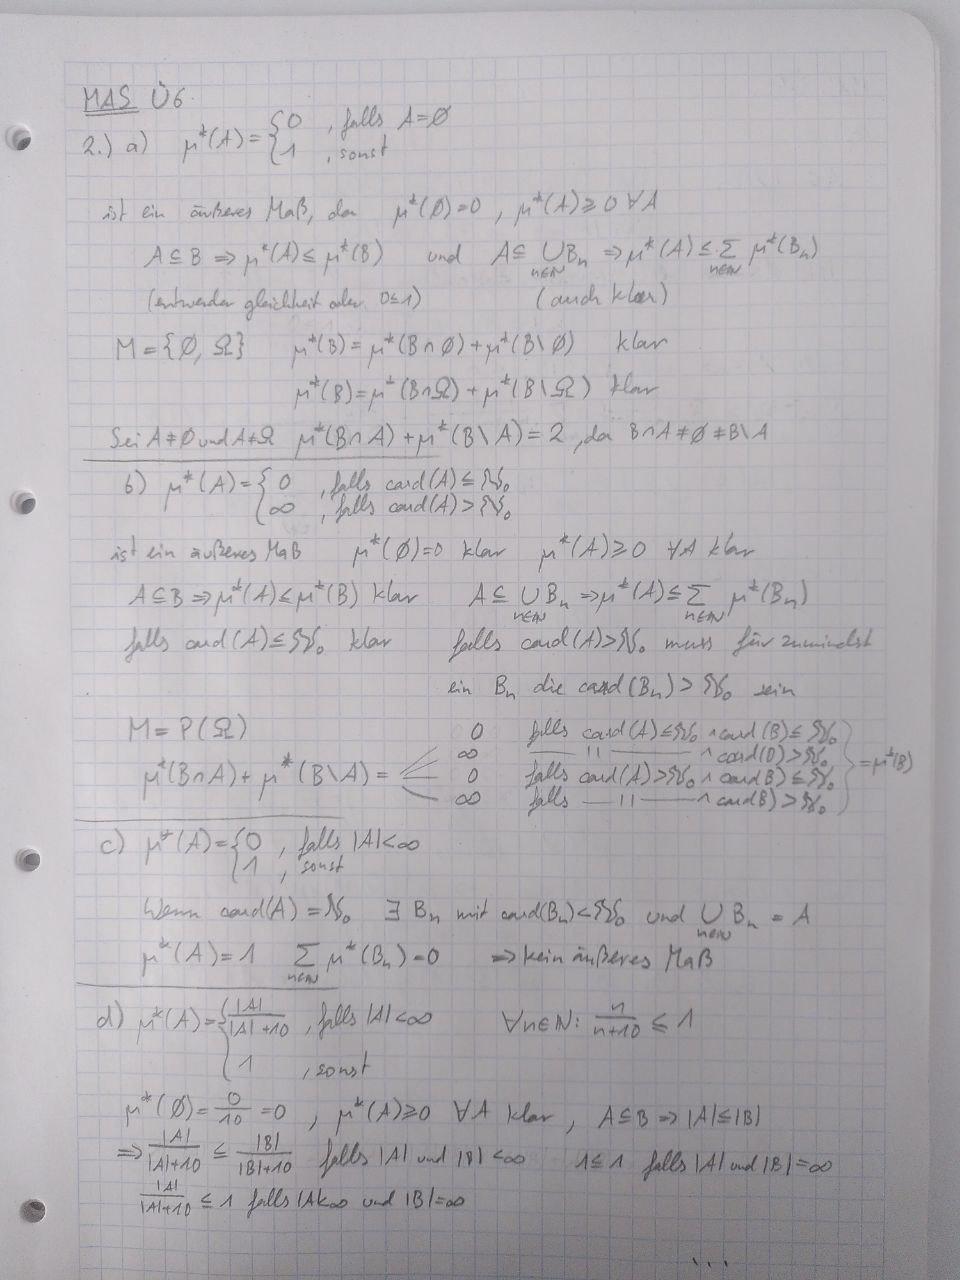 MAS Ü6
2.) a) μ*(A) = { 0 , falls A=∅
1 , sonst
ist ein äußeres Maß, da μ*(∅)=0 , μ*(A)≥0 ∀A
A⊆B ⇒ μ*(A) ≤ μ*(B) und A⊆ ∪_{n∈ℕ} B_n ⇒ μ*(A) ≤ Σ_{n∈ℕ} μ*(B_n)
(entweder gleichheit oder 0≤1) (auch klar)
M = {∅, Ω} μ*(B) = μ*(B∩∅) + μ*(B\∅) klar
μ*(B) = μ*(B∩Ω) + μ*(B\Ω) klar
Sei A≠∅ und A≠Ω μ*(B∩A) + μ*(B\A) = 2 , da B∩A≠∅≠B\A
b) μ*(A) = { 0 , falls card(A) ≤ ℵ₀
∞ , falls card(A) > ℵ₀
ist ein äußeres Maß μ*(∅)=0 klar μ*(A)≥0 ∀A klar
A⊆B ⇒ μ*(A) ≤ μ*(B) klar A⊆ ∪_{n∈ℕ} B_n ⇒ μ*(A) ≤ Σ_{n∈ℕ} μ*(B_n)
falls card(A) ≤ ℵ₀ klar falls card(A) > ℵ₀ muss für zumindest
ein B_n die card(B_n) > ℵ₀ sein
M = P(Ω) 0 falls card(A) ≤ ℵ₀ ∧ card(B) ≤ ℵ₀
∞ —— 11 —— ∧ card(B) > ℵ₀
μ*(B∩A) + μ*(B\A) = 0 falls card(A) > ℵ₀ ∧ card(B) ≤ ℵ₀ } = μ*(B)
∞ falls —— 11 —— ∧ card(B) > ℵ₀
c) μ*(A) = { 0 , falls |A|<∞
1 , sonst
Wenn card(A) = ℵ₀ ∃ B_n mit card(B_n) < ℵ₀ und ∪_{n∈ℕ} B_n = A
μ*(A) = 1 Σ_{n∈ℕ} μ*(B_n) = 0 ⇒ kein äußeres Maß
d) μ*(A) = { |A|/(|A|+10) , falls |A|<∞ ∀n∈ℕ: n/(n+10) ≤ 1
1 , sonst
μ*(∅) = 0/10 = 0 , μ*(A)≥0 ∀A klar , A⊆B ⇒ |A|≤|B|
⇒ |A|/(|A|+10) ≤ |B|/(|B|+10) falls |A| und |B| <∞ 1≤1 falls |A| und |B|=∞
|A|/(|A|+10) ≤ 1 falls |A|<∞ und |B|=∞
...